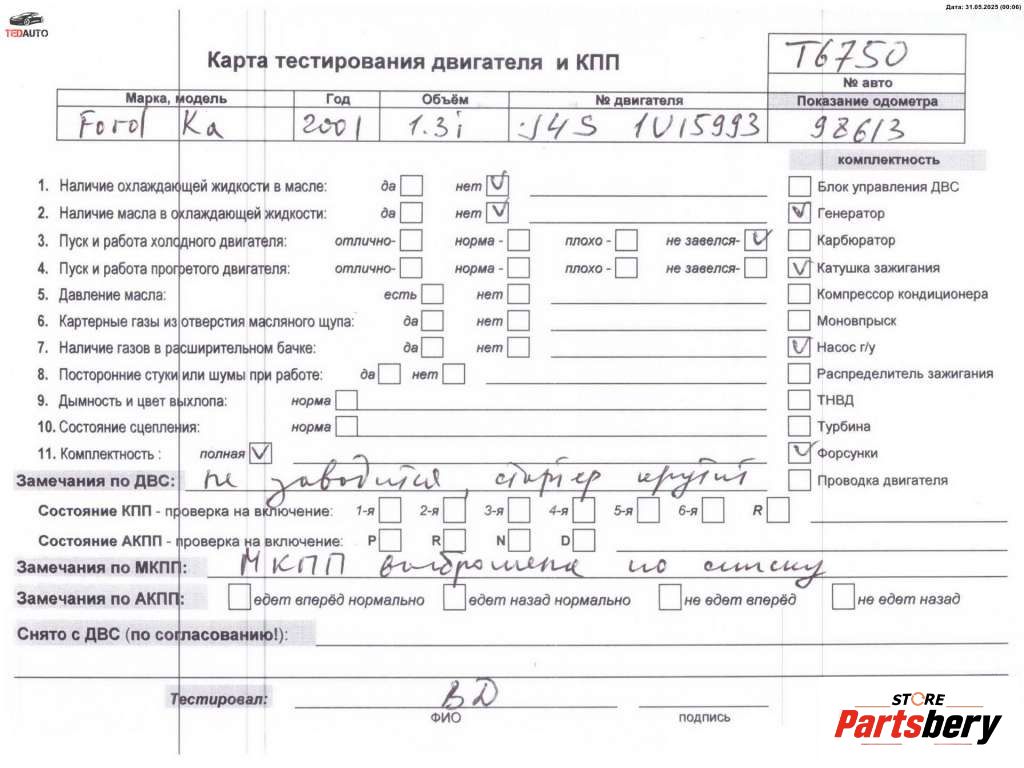 Дата: 31.05.2025 (00:06)
TEDAUTO
Карта тестирования двигателя и КПП
T6750
№ авто
Марка, модель Год Объём № двигателя Показание одометра
Ford Ka 2001 1.3i J4S 1U15993 98613
комплектность
1. Наличие охлаждающей жидкости в масле: да нет Блок управления ДВС
2. Наличие масла в охлаждающей жидкости: да нет Генератор
3. Пуск и работа холодного двигателя: отлично- норма - плохо - не завелся- Карбюратор
4. Пуск и работа прогретого двигателя: отлично- норма - плохо - не завелся- Катушка зажигания
5. Давление масла: есть нет Компрессор кондиционера
6. Картерные газы из отверстия масляного щупа: да нет Моновпрыск
7. Наличие газов в расширительном бачке: да нет Насос г/у
8. Посторонние стуки или шумы при работе: да нет Распределитель зажигания
9. Дымность и цвет выхлопа: норма ТНВД
10. Состояние сцепления: норма Турбина
11. Комплектность : полная Форсунки
Замечания по ДВС: не заводится, стартер крутит Проводка двигателя
Состояние КПП - проверка на включение: 1-я 2-я 3-я 4-я 5-я 6-я R
Состояние АКПП - проверка на включение: P R N D
Замечания по МКПП: МКПП выброшена по списку
Замечания по АКПП: едет вперёд нормально едет назад нормально не едет вперёд не едет назад
Снято с ДВС (по согласованию!):
Тестировал: ВД
ФИО подпись
STORE
Partsbery